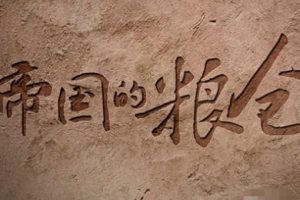 帝国的粮仓